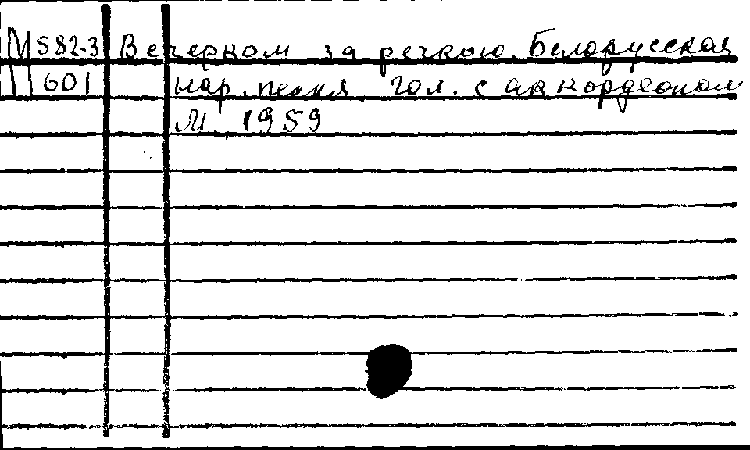 М 582-3 Вечерком за речкою. Белорусская
601 нар. песня. Гол. с аккордеоном
М. 1959